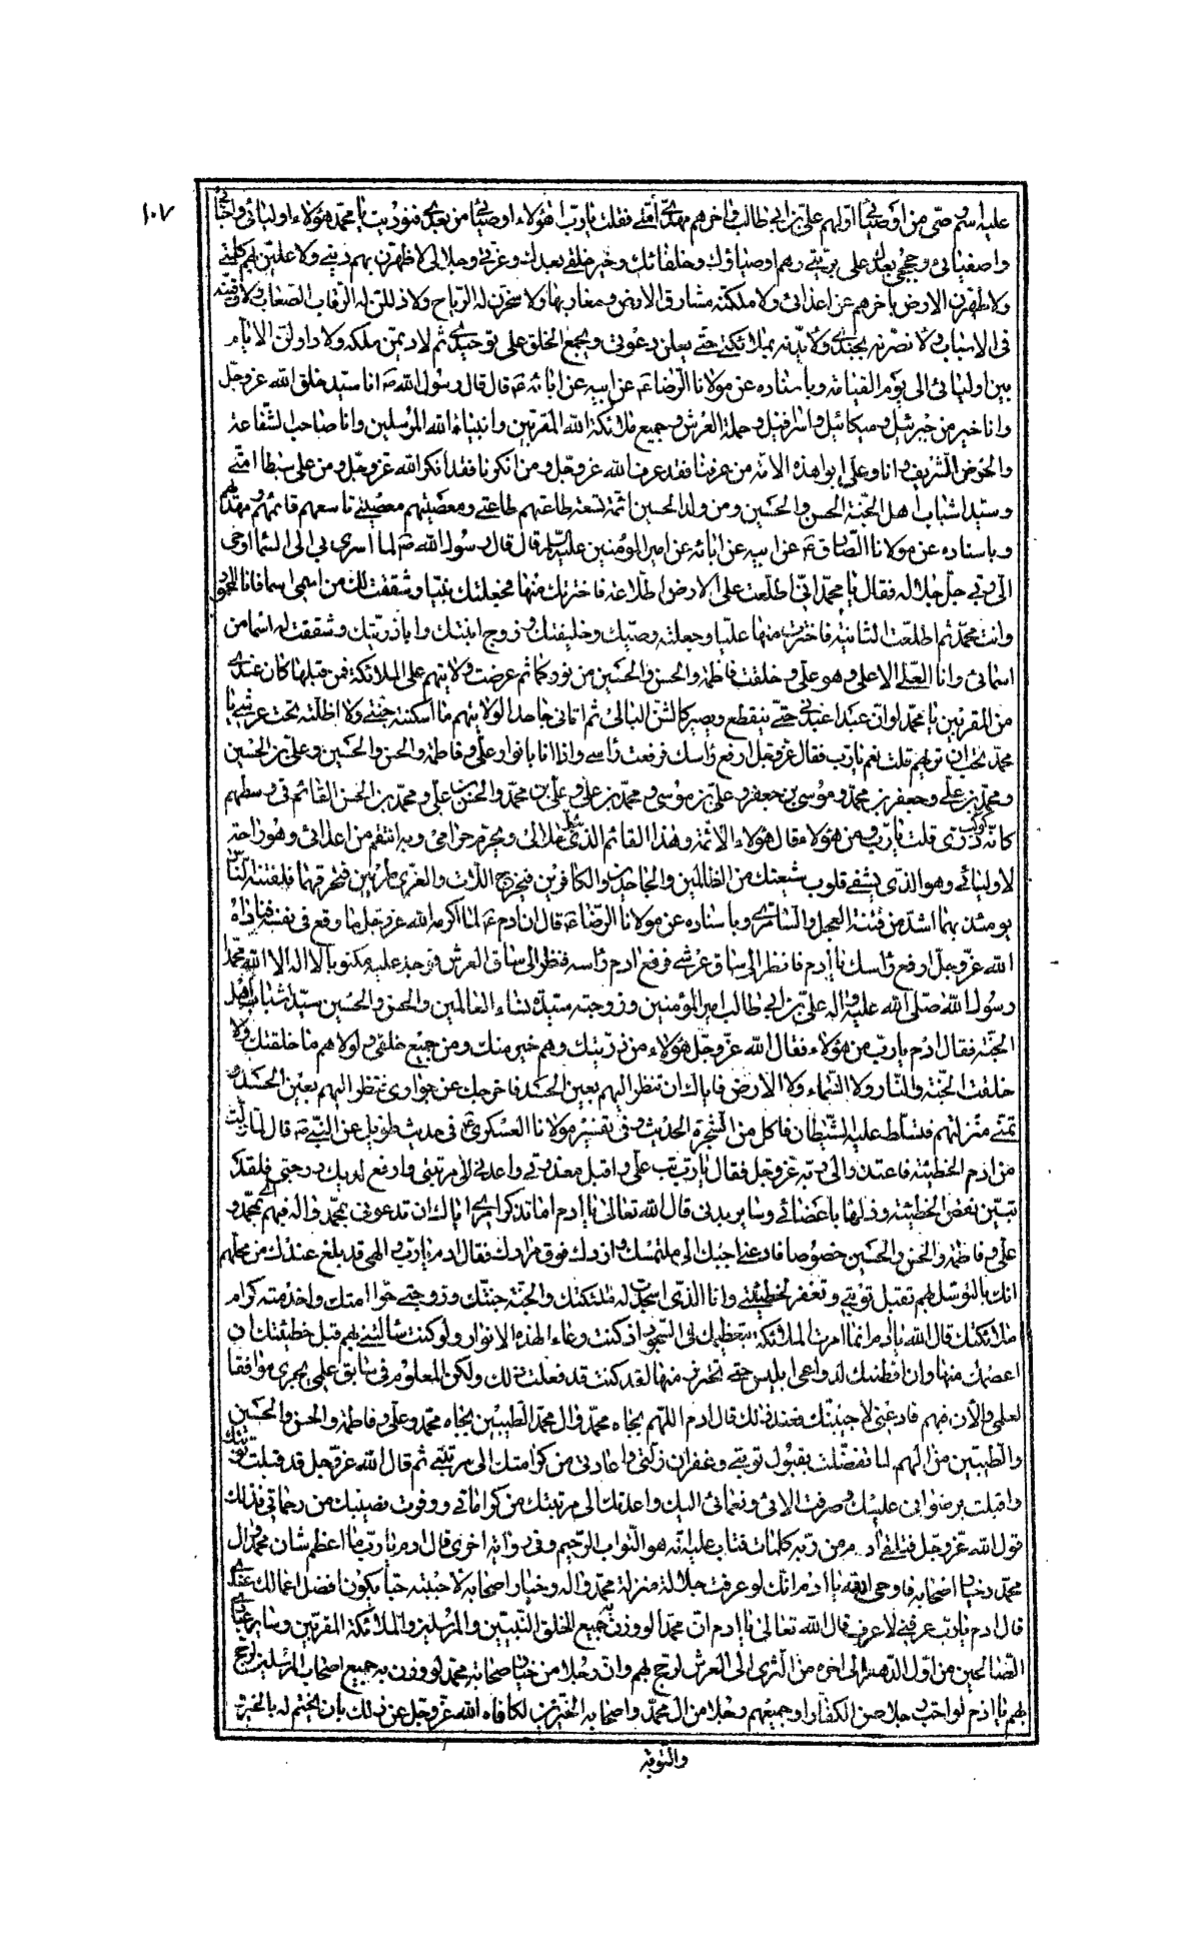 ١٠٧
عليه اسم وصي من اوصيائي اولهم علي بن ابي طالب واخرهم مهدي امتي فقلت يا رب هؤلاء اوصيائي من بعدي فنوديت يا محمد هؤلاء اوليائي واحبائي
واصفيائي وحججي بعدك على بريتي وهم اوصياؤك وخلفائك وخير خلقي بعدك وعزتي وجلالي لاظهرن بهم ديني ولاعلين بهم كلمتي
ولاطهرن الارض باخرهم عن اعدائي ولاملكنه مشارق الارض ومغاربها ولاسخرن له الرياح ولاذللن له الرقاب الصعاب ولارقينه
في الاسباب ولانصرنه بجندي ولامدنه بملائكتي حتى يعلن دعوتي ويجمع الخلق على توحيدي ثم لاديمن ملكه ولاداولن الايام
بين اوليائي الى يوم القيامة وباسناده عن مولانا الرضا ع عن ابيه عن ابائه ع قال قال رسول الله ص انا سيد خلق الله عز وجل
وانا خير من جبرئيل وميكائيل واسرافيل وحملة العرش وجميع ملائكة الله المقربين وانبياء الله المرسلين وانا صاحب الشفاعة
والحوض الشريف وانا وعلي ابوا هذه الامة من عرفنا فقد عرف الله عز وجل ومن انكرنا فقد انكر الله عز وجل ومن علي سبطا امتي
وسيدا شباب اهل الجنة الحسن والحسين ومن ولد الحسين ائمة تسعة طاعتهم طاعتي ومعصيتهم معصيتي تاسعهم قائمهم ومهديهم
وباسناده عن مولانا الصادق ع عن ابيه عن ابائه عن امير المؤمنين عليه السلام قال قال رسول الله ص لما اسري بي الى السماء اوحى
الي ربي جل جلاله فقال يا محمد اني اطلعت على الارض اطلاعة فاخترتك منها فجعلتك نبيا وشققت لك من اسمي اسما فانا المحمود
وانت محمد ثم اطلعت الثانية فاخترت منها عليا وجعلته وصيك وخليفتك وزوج ابنتك وابا ذريتك وشققت له اسما من
اسمائي وانا العلي الاعلى وهو علي وخلقت فاطمة والحسن والحسين من نوركما ثم عرضت ولايتهم على الملائكة فمن قبلها كان عندي
من المقربين يا محمد لو ان عبدا عبدني حتى ينقطع ويصير كالشن البالي ثم اتاني جاحدا لولايتهم ما اسكنته جنتي ولا اظللته تحت عرشي يا
محمد تحب ان تراهم قلت نعم يا رب فقال عز وجل ارفع راسك فرفعت راسي واذا انا بانوار علي وفاطمة والحسن والحسين وعلي بن الحسين
ومحمد بن علي وجعفر بن محمد وموسى بن جعفر وعلي بن موسى ومحمد بن علي وعلي بن محمد والحسن بن علي ومحمد بن الحسن القائم في وسطهم
كانه كوكب دري قلت يا رب ومن هؤلاء قال هؤلاء الائمة وهذا القائم الذي يحلل حلالي ويحرم حرامي وبه انتقم من اعدائي وهو راحة
لاوليائي وهو الذي يشفي قلوب شيعتك من الظالمين والجاحدين والكافرين فيخرج اللات والعزى طريين فيحرقهما فلفتنة الناس
يومئذ بهما اشد من فتنة العجل والسامري وباسناده عن مولانا الرضا ع قال ان ادم ع لما اكرمه الله عز وجل ما وقع في نفسه فناداه
الله عز وجل ارفع راسك يا ادم فانظر الى ساق عرشي فرفع ادم راسه فنظر الى ساق العرش فوجد عليه مكتوبا لا اله الا الله محمد
رسول الله صلى الله عليه واله علي بن ابي طالب امير المؤمنين وزوجته سيدة نساء العالمين والحسن والحسين سيدا شباب اهل
الجنة فقال ادم يا رب من هؤلاء فقال الله عز وجل هؤلاء من ذريتك وهم خير منك ومن جميع خلقي ولولاهم ما خلقتك ولا
خلقت الجنة والنار ولا السماء ولا الارض فاياك ان تنظر اليهم بعين الحسد فاخرجك عن جواري فنظر اليهم بعين الحسد و
تمنى منزلتهم فتسلط عليه الشيطان فاكل من الشجرة الحديث وفي تفسير مولانا العسكري ع في حديث طويل عن النبي ص قال لما زلت
من ادم الخطيئة فاعتذر الى ربه عز وجل فقال يا رب تب علي واقبل معذرتي واعدني الى مرتبتي وارفع لديك درجتي فلقد
تبين نقص الخطيئة وذلها باعضائي وسائر بدني قال الله تعالى يا ادم اما تذكر امري اياك ان تدعوني بمحمد واله فبهم بمحمد و
علي وفاطمة والحسن والحسين خصوصا فادعني اجبك الى ملتمسك وازدك فوق مرادك فقال ادم يا رب والهي قد بلغ عندك من محلهم
انك بالتوسل بهم تقبل توبتي وتغفر خطيئتي وانا الذي اسجدت له ملئكتك والجنة جنتك وزوجتي حوا امتك واخدمته كرام
ملائكتك قال الله يا ادم انما امرت الملائكة بتعظيمك في السجود اذ كنت وعاء لهذه الانوار ولو كنت سالتني بهم قبل خطيئتك ان
اعصمك منها وان افطنك لدواعي ابليس حتى تحترز منها لقد كنت قد فعلت ذلك ولكن المعلوم في سابق علمي يجري موافقا
لعلمي والان فبهم فادعني لاجيبنك فعند ذلك قال ادم اللهم بجاه محمد وال محمد الطيبين بجاه محمد وعلي وفاطمة والحسن والحسين
والطيبين من الهم لما تفضلت بقبول توبتي وغفران زلتي واعادتي من كرامتك الى مرتبتي ثم قال الله عز وجل قد قبلت توبتك
واقبلت برضواني عليك وصرفت الائي ونعمائي اليك واعدتك الى مرتبتك من كراماتي ووفرت نصيبك من رحماتي فذلك
قول الله عز وجل فتلقى ادم من ربه كلمات فتاب عليه انه هو التواب الرحيم وفي رواية اخرى قال ادم يا رب ما اعظم شان محمد وال
محمد وخيار اصحابه فاوحى الله يا ادم انك لو عرفت جلالة منزلة محمد واله وخيار اصحابه لاحببته حبا يكون افضل اعمالك عندي
قال ادم يا رب عرفني لاعرف قال الله تعالى يا ادم ان محمدا لو وزن به جميع الخلق النبيين والمرسلين والملائكة المقربين وسائر عبادي
الصالحين من اول الدهر الى اخره من الثرى الى العرش لرجح بهم وان رجلا من خيار صحابة محمد لو وزن به جميع اصحاب المرسلين لرجح
بهم يا ادم لو احب رجلا من الكفار او جميعهم رجلا من ال محمد واصحابه الخيرين لكافاه الله عز وجل عن ذلك بان يختم له بالخير
والتوبة